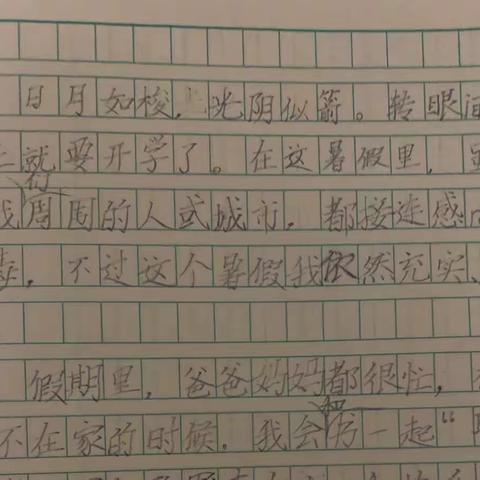 日月如梭，光阴似箭。转眼间
就要开学了。在这暑假里，虽
我们周围的人或城市，都接连感
毒，不过这个暑假我依然充实、
假期里，爸爸妈妈都很忙，
不在家的时候，我会和书一起“